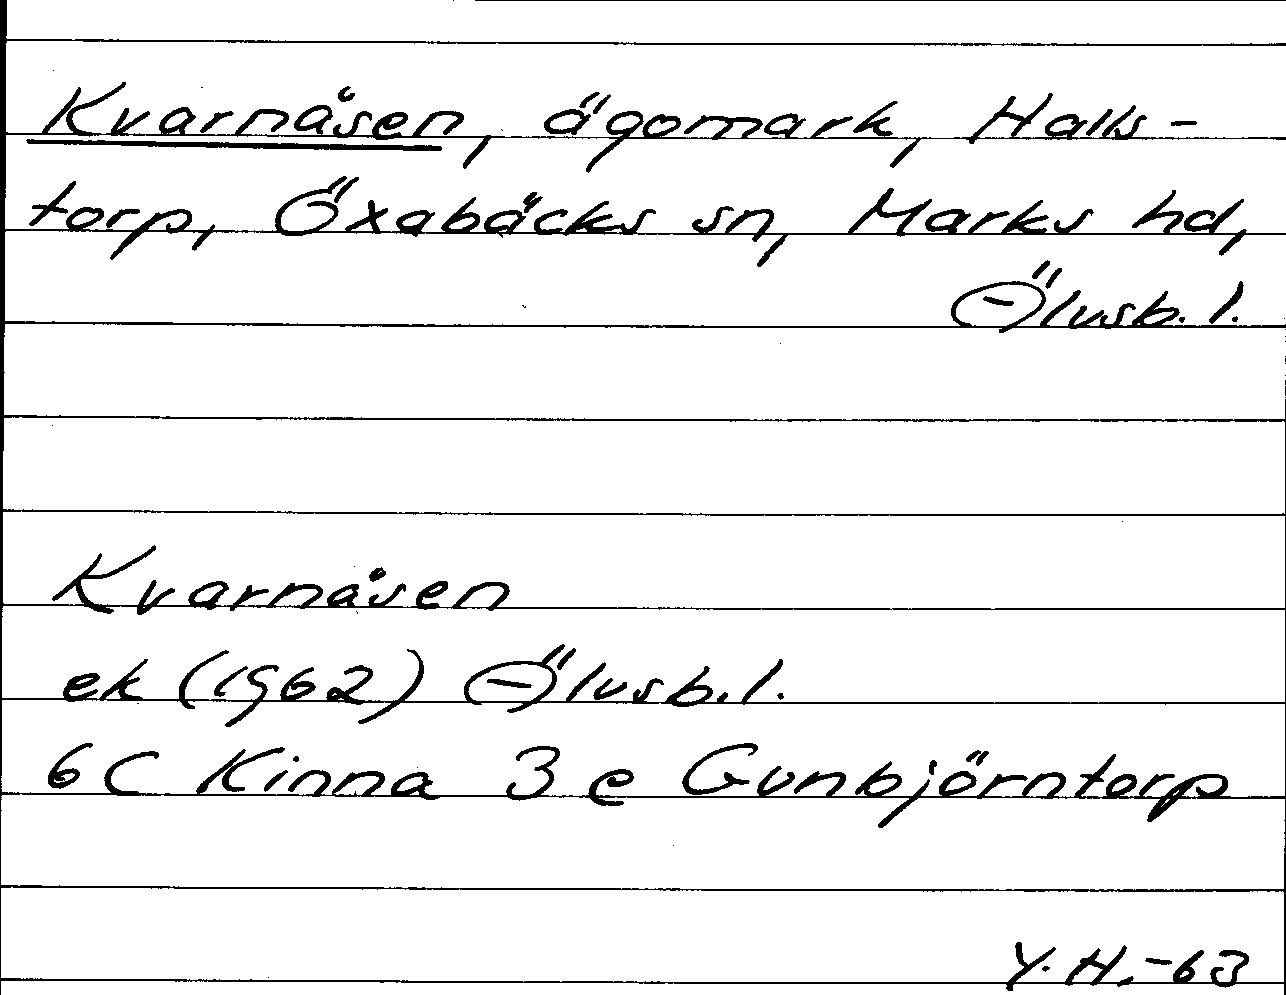 Kvarnåsen, ägomark, Halls-
torp, Öxabäcks sn, Marks hd,
Älvsb. l.
Kvarnåsen
ek (1962) Älvsb. l.
6 C Kinna 3 e Gunbjörntorp
Y. H. -63